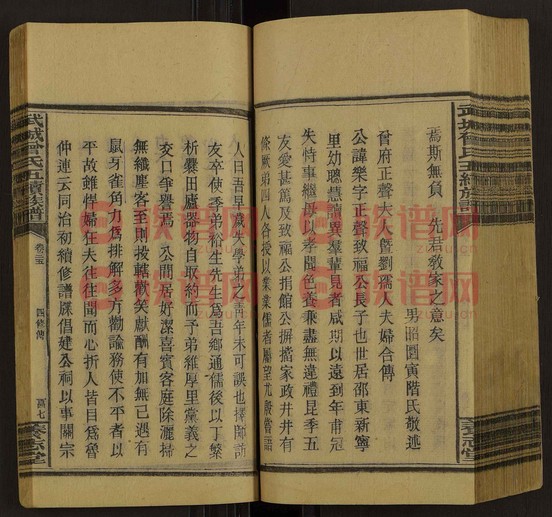 焉斯無負　先君教家之意矣
男昭圓寅階氏敬述
晉府正聲大人暨劉孺人夫婦合傳
公諱樂字正聲致福公長子也世居邵東新寧
里幼聰慧讀異羣輩見者咸期以遠到年甫冠
失恃事繼母以孝聞色養兼盡無違禮昆季五
友愛甚篤及致福公捐館公摒擋家政井井有
條厥弟四人各授以業業儒者屬望尤殷嘗語
人曰吾早歲失學弟之青年未可誤也擇師訪
友卒使季弟裕生先生爲吾鄉通儒後以丁繁
析爨田廬器物自取約而予弟維厚里黨義之
交口爭譽焉　公閒居好潔喜賓客庭除灑掃
無纖塵客至則投轄歡笑獻酬有加無已遇有
鼠牙雀角力爲排解多方勸諭務使不平者以
平故雖悍婦狂夫往往聞而心折人皆目爲魯
仲連云同治初續修譜牒倡建公祠以事關宗
武城曾氏五續族譜
卷三五
四修傳
萬七
養志堂
武城曾氏五續族譜
養志堂
族谱网